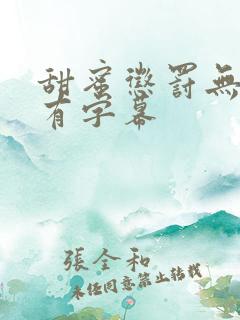 甜蜜懲罰無
有字幕
張全和
未经同意禁止转载